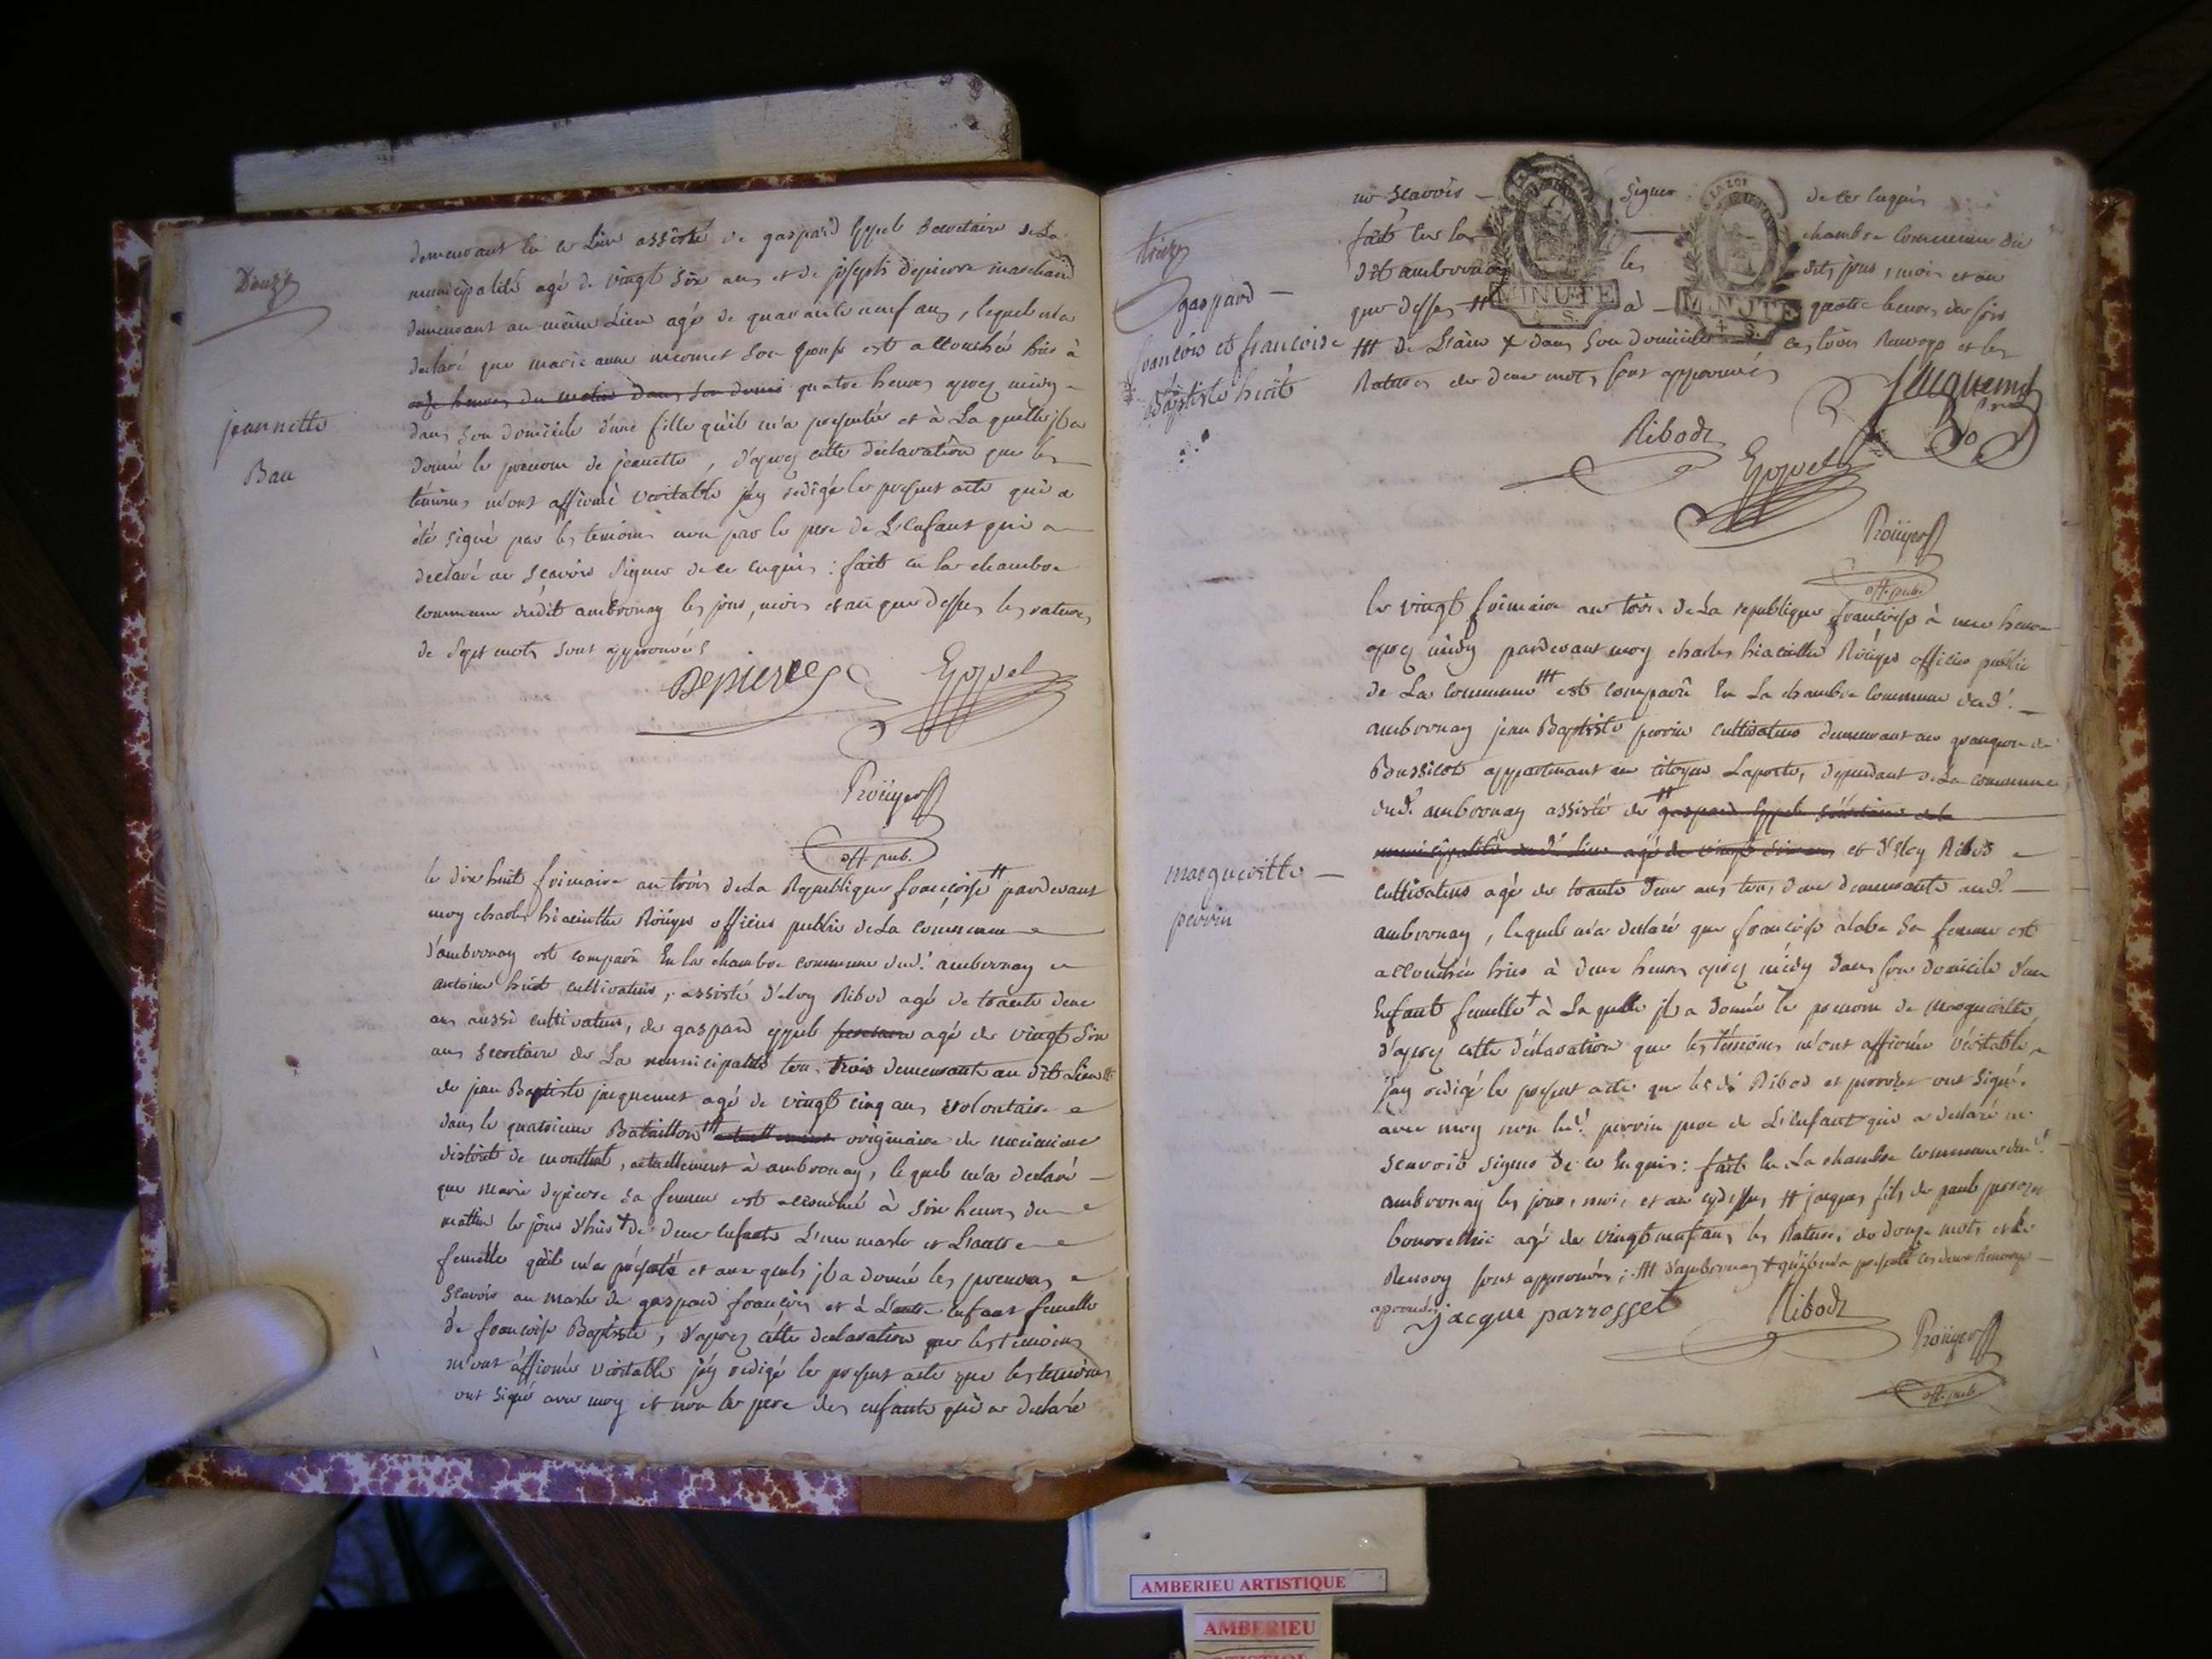 Douze
jeannette
Bau
demeurant en ce Lieu assisté de gaspard Eppel Secretaire de La
municipalité agé de vingt six ans et de joseph depierre marchand
demeurant au même Lieu agé de quarante neuf ans, lequel m'a
declaré que marie anne son epouse est accouchée hier à
onze heures du matin dans son domi quatre heures apres midy
dans son domicile d'une fille qu'il m'a presentée et à La quelle il a
donné le prenom de jeannette, d'apres cette declaration que les
temoins m'ont affirmé veritable j'ay redigé le present acte qui a
été signé par les temoins non par le pere de L'enfant qui a
declaré ne scavoir signer de ce enquis : fait en la chambre
commune dudit ambronay les jour, mois et an que dessus les ratures
de sept mots sont approuvées
Depierre
Eppel
Roüyer
off. pub.
le dix huit frimaire an trois de La Republique françoise # pardevant
moy charles hiacinthe Roüyer officier public de La commune
d'ambronay est comparu En la chambre commune dud. ambronay
antoine huit cultivateur, assisté d'eloy Ribod agé de trante deux
ans aussi cultivateur, de gaspard eppel agé de vingt six
ans secretaire de La municipalité tous trois demeurants au dit Lieu #
de jean Baptiste jacquemet agé de vingt cinq ans volontaire
dans le quatrieme Bataillon ### actuellement originaire de meximieux
district de montluel, actuellement à ambronay, lequel m'a declaré
que marie depierre sa femme est accouchée à six heures du
matin le jour d'hier + de deux enfants L'un masle et L'autre
femelle qu'il m'a présenté et aux quels il a donné les prenoms
scavoir au masle de gaspard françois et à L'autre enfant femelle
de françoise Baptiste, d'apres cette declaration que les temoins
m'ont affirmé veritable j'ay redigé le present acte que les temoins
ont signé avec moy et non le pere des enfants qui a declaré
treize
gaspard
françois et francoise
Baptiste huit
ne scavoir signer de ce enquis
fait en la chambre commune du
dit ambronay les dits jour, mois et an
que dessus # à quatre heures du soir
### de L'ain + dans son domicile ces trois renvoys et les
Ratures de deux mots sont approuvés
LA LOI
MINUTE
4 S.
MINUTE
4 S.
Jacquemet
Ribod
Eppel
Roüyer
off. pub.
margueritte
perrin
le vingt frimaire an trois de La republique françoise à une heure
apres midy pardevant moy charles hiacinthe Roüyer officier public
de La commune ### est comparu En La chambre commune dud.
ambronay jean Baptiste perrin cultivateur demeurant au grangeon de
Boussicot appartenant au citoyen Laporte, dependant de La commune
dud. ambronay assisté de # gaspard Eppel secretaire de la
municipalité dud. Lieu agé de vingt six ans et d'eloy Ribod
cultivateur agé de trante deux ans tous deux demeurants aud.
ambronay, lequel m'a declaré que françoise alabe sa femme est
accouchée hier à deux heures apres midy dans son domicile d'un
Enfant femelle + à La quelle il a donné le prenom de marguerite
d'apres cette déclaration que les témoins m'ont affirmée véritable
j'ay redigé le present acte que les ds Ribod et perrozet ont signé
avec moy non led. perrin pere de L'enfant qui a declaré ne
scavoir signer de ce enquis : fait en La chambre commune dud.
ambronay les jour, mois et an cydessus # jacques fils de paul
agé de vingt neuf ans les Ratures de douze mots et le
Renvoy sont approuvés ; ### d'ambronay + qu'il m'a presenté ces deux Renvoys
approuvés
jacque parrosset
Ribod
Roüyer
off. pub.
AMBERIEU ARTISTIQUE
AMBERIEU